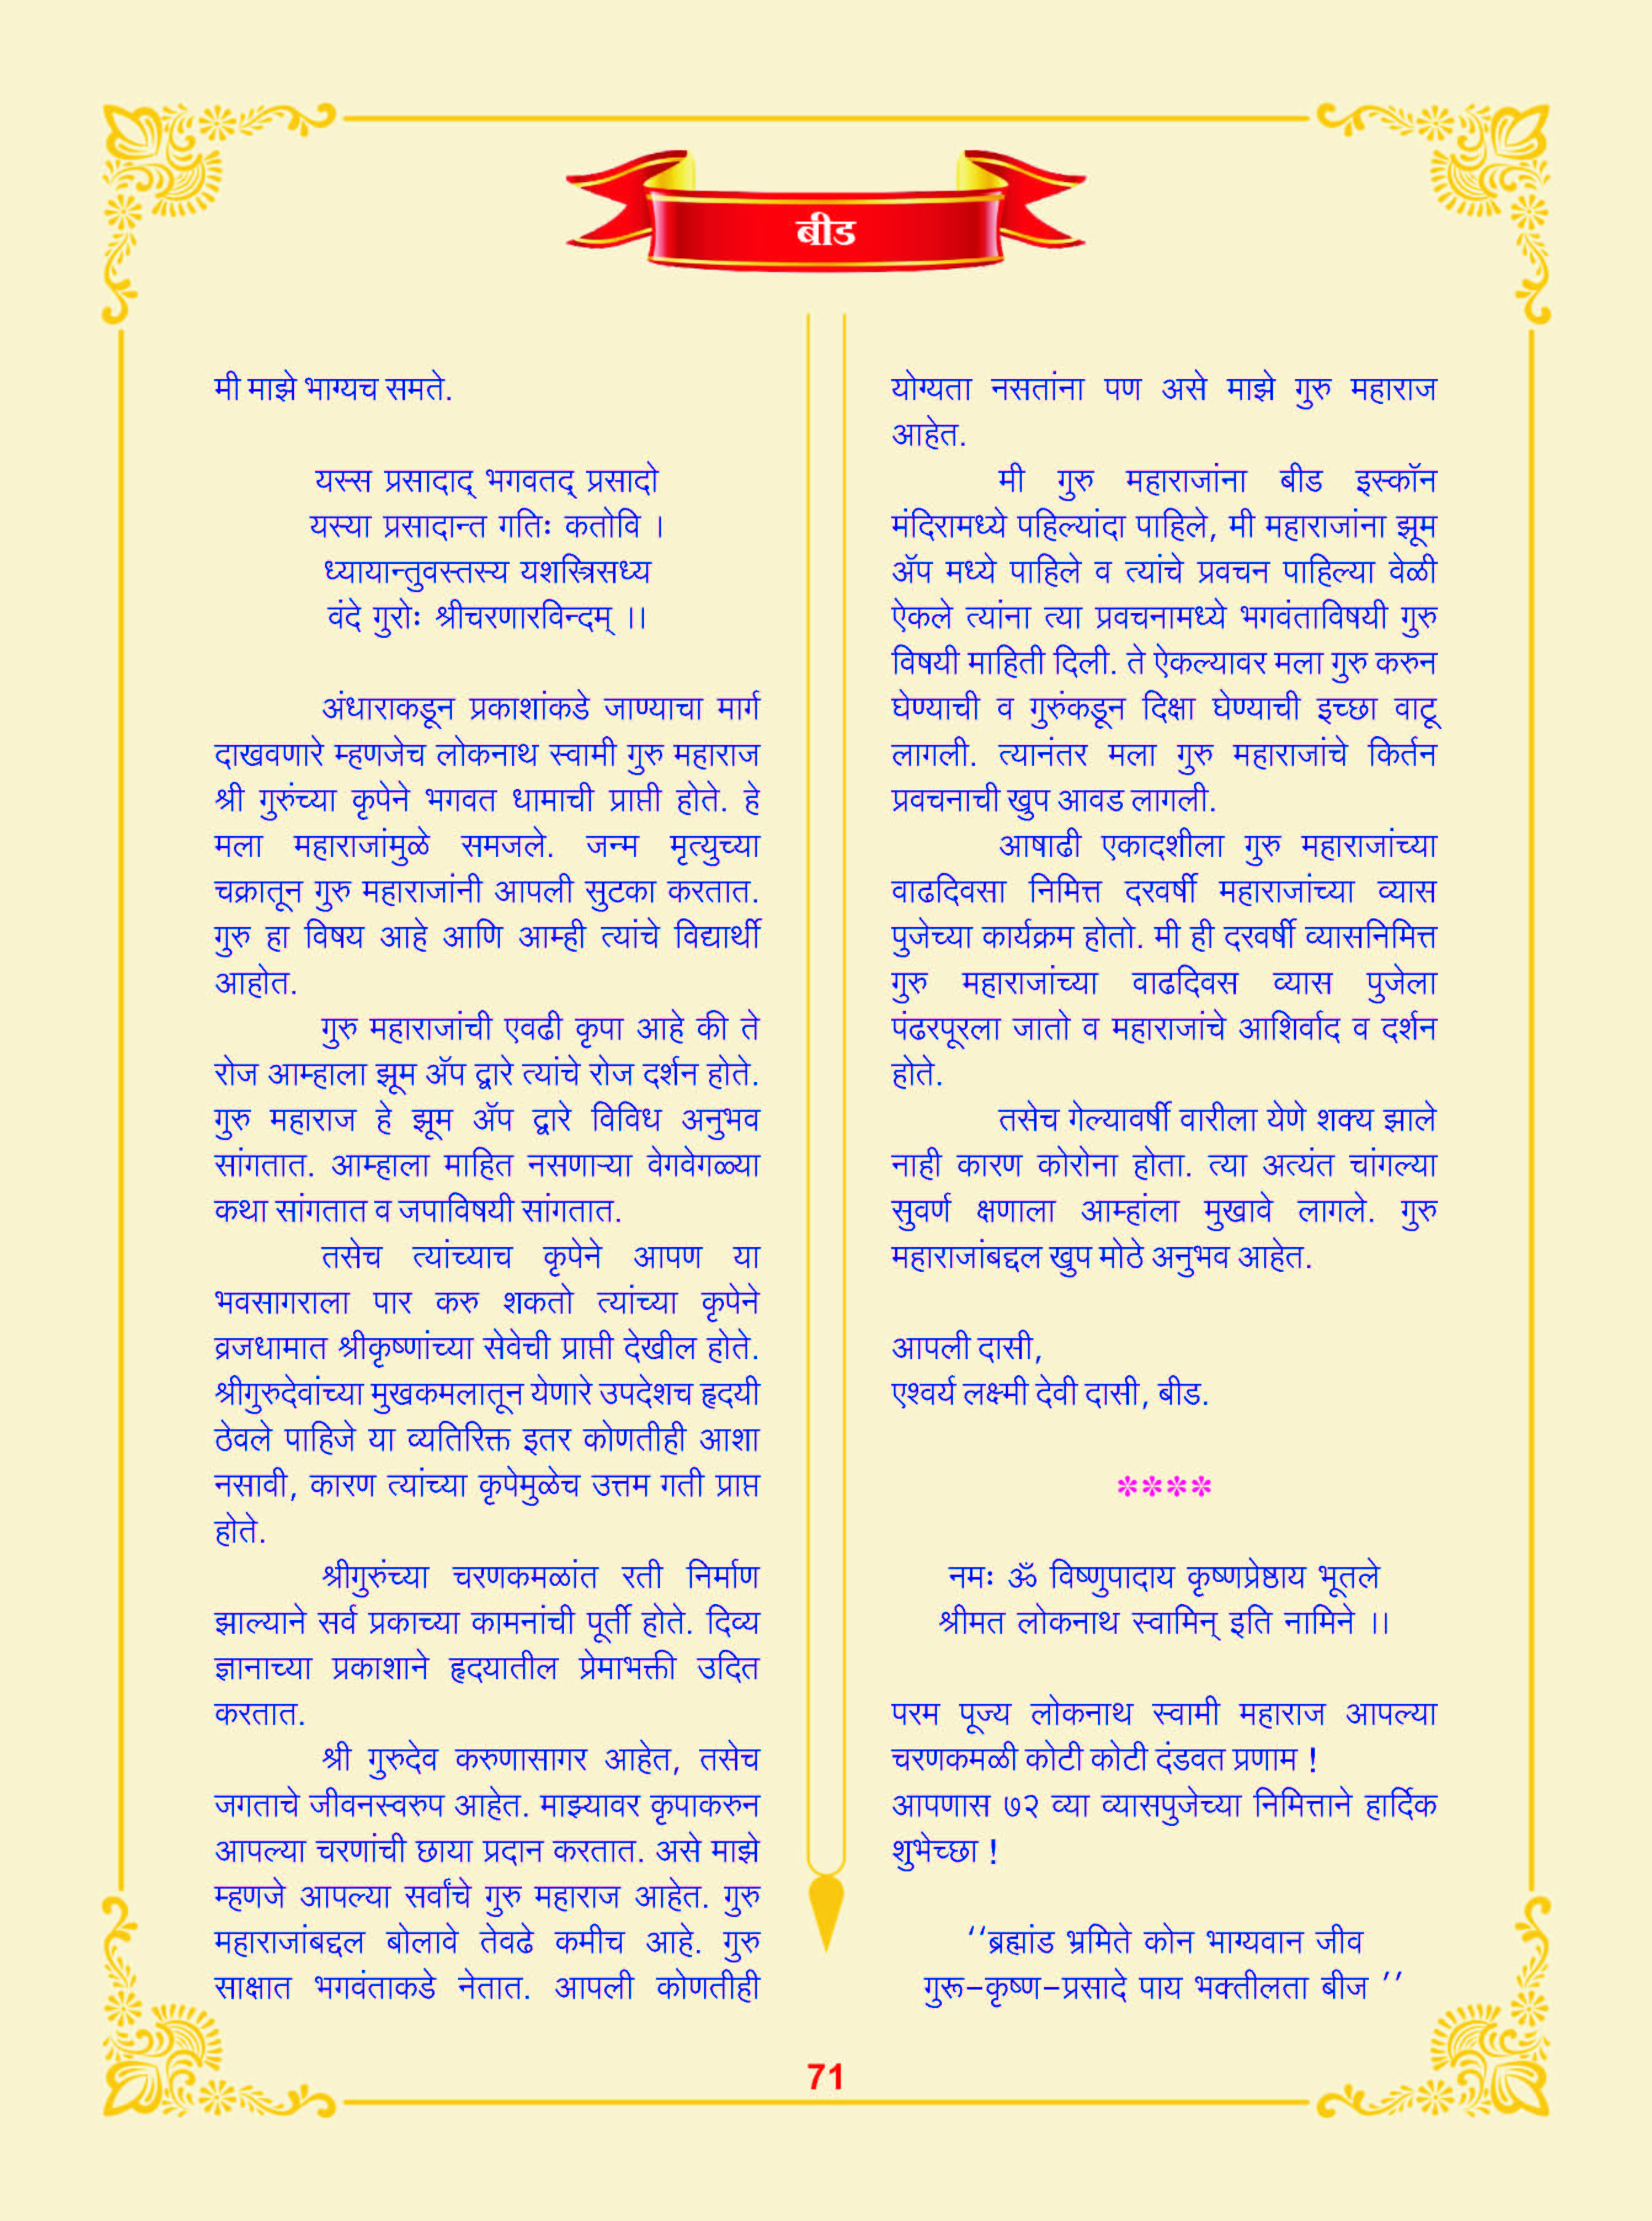 बीड
मी माझे भाग्यच समते.
यस्स प्रसादाद् भगवतद् प्रसादो
यस्या प्रसादान्त गतिः कतोवि ।
ध्यायान्तुवस्तस्य यशस्त्रिसध्य
वंदे गुरोः श्रीचरणारविन्दम् ।।
अंधाराकडून प्रकाशांकडे जाण्याचा मार्ग
दाखवणारे म्हणजेच लोकनाथ स्वामी गुरु महाराज
श्री गुरुंच्या कृपेने भगवत धामाची प्राप्ती होते. हे
मला महाराजांमुळे समजले. जन्म मृत्युच्या
चक्रातून गुरु महाराजांनी आपली सुटका करतात.
गुरु हा विषय आहे आणि आम्ही त्यांचे विद्यार्थी
आहोत.
गुरु महाराजांची एवढी कृपा आहे की ते
रोज आम्हाला झूम ॲप द्वारे त्यांचे रोज दर्शन होते.
गुरु महाराज हे झूम ॲप द्वारे विविध अनुभव
सांगतात. आम्हाला माहित नसणाऱ्या वेगवेगळ्या
कथा सांगतात व जपाविषयी सांगतात.
तसेच त्यांच्याच कृपेने आपण या
भवसागराला पार करु शकतो त्यांच्या कृपेने
व्रजधामात श्रीकृष्णांच्या सेवेची प्राप्ती देखील होते.
श्रीगुरुदेवांच्या मुखकमलातून येणारे उपदेशच हृदयी
ठेवले पाहिजे या व्यतिरिक्त इतर कोणतीही आशा
नसावी, कारण त्यांच्या कृपेमुळेच उत्तम गती प्राप्त
होते.
श्रीगुरुंच्या चरणकमळांत रती निर्माण
झाल्याने सर्व प्रकाच्या कामनांची पूर्ती होते. दिव्य
ज्ञानाच्या प्रकाशाने हृदयातील प्रेमाभक्ती उदित
करतात.
श्री गुरुदेव करुणासागर आहेत, तसेच
जगताचे जीवनस्वरुप आहेत. माझ्यावर कृपाकरुन
आपल्या चरणांची छाया प्रदान करतात. असे माझे
म्हणजे आपल्या सर्वांचे गुरु महाराज आहेत. गुरु
महाराजांबद्दल बोलावे तेवढे कमीच आहे. गुरु
साक्षात भगवंताकडे नेतात. आपली कोणतीही
योग्यता नसतांना पण असे माझे गुरु महाराज
आहेत.
मी गुरु महाराजांना बीड इस्कॉन
मंदिरामध्ये पहिल्यांदा पाहिले, मी महाराजांना झूम
ॲप मध्ये पाहिले व त्यांचे प्रवचन पाहिल्या वेळी
ऐकले त्यांना त्या प्रवचनामध्ये भगवंताविषयी गुरु
विषयी माहिती दिली. ते ऐकल्यावर मला गुरु करुन
घेण्याची व गुरुंकडून दिक्षा घेण्याची इच्छा वाटू
लागली. त्यानंतर मला गुरु महाराजांचे किर्तन
प्रवचनाची खुप आवड लागली.
आषाढी एकादशीला गुरु महाराजांच्या
वाढदिवसा निमित्त दरवर्षी महाराजांच्या व्यास
पुजेच्या कार्यक्रम होतो. मी ही दरवर्षी व्यासनिमित्त
गुरु महाराजांच्या वाढदिवस व्यास पुजेला
पंढरपूरला जातो व महाराजांचे आशिर्वाद व दर्शन
होते.
तसेच गेल्यावर्षी वारीला येणे शक्य झाले
नाही कारण कोरोना होता. त्या अत्यंत चांगल्या
सुवर्ण क्षणाला आम्हांला मुखावे लागले. गुरु
महाराजांबद्दल खुप मोठे अनुभव आहेत.
आपली दासी,
एश्वर्य लक्ष्मी देवी दासी, बीड.
****
नमः ॐ विष्णुपादाय कृष्णप्रेष्ठाय भूतले
श्रीमत लोकनाथ स्वामिन् इति नामिने ।।
परम पूज्य लोकनाथ स्वामी महाराज आपल्या
चरणकमळी कोटी कोटी दंडवत प्रणाम !
आपणास ७२ व्या व्यासपुजेच्या निमित्ताने हार्दिक
शुभेच्छा !
‘‘ब्रह्मांड भ्रमिते कोन भाग्यवान जीव
गुरू-कृष्ण-प्रसादे पाय भक्तीलता बीज ’’
71